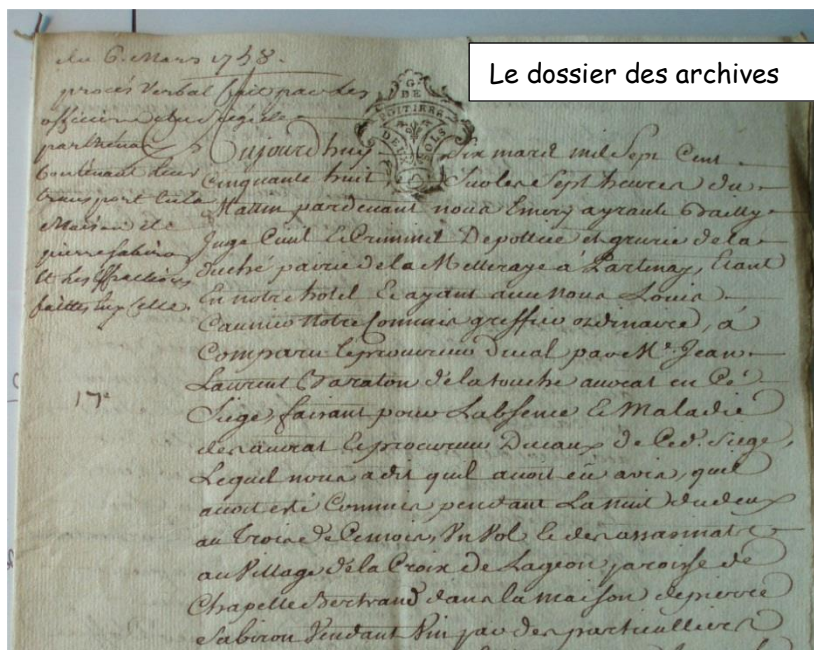 Le dossier des archives
du 6. Mars 1758.
procés Verbal fait par les
officiers du siége de
parthenay
Contenant leur
transport en la
Maison de
pierre Sabiron
et les Effractions
faittes en icelle.
17e
G. DE
POITIERS
DEUX SOLS
Aujourd'huy Six mard mil Sept Cent
Cinquante huit Sur les Sept heures du
Matin pardevant nous Emery ayrault Dailly
Juge Civil et Criminel De pollice et grurie de la
duché pairie de la Melleraye à Partenay, Etant
En notre hotel Et ayant avec Nous Louis
notre Commis greffier ordinaire, à
Comparu le procureur Ducal par Me. Jean
Laurent de la touche avocat en Cé
Siége, faisant pour Labsence Et Maladie
des avocat Et procureur Ducaux de Ced. Siege,
Lequel nous a dit quil avoit eü avis, quil
avoit esté Commis pendant La nuit du deux
au Trois de Cemois, Un Vol Et des assasinats
au Village de la Croix de Lageon paroisse de
Chapelle Bertrand dans la maison de pierre
Sabiron Vendant Vin par des particulliers